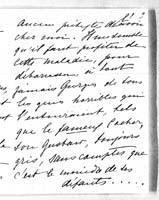 aucun prétexte de
chez moi. Il me semble
qu'il faut profiter de
cette maladie, pour
débarrasser à tout
jamais Georges de tous
les gens horribles qui
l'entourent, tels
que le fameux
son Gustave, toujours
gris, sans compter que
c'est le moindre de ses
défauts.....